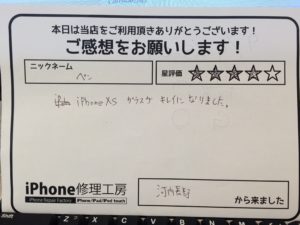 本日は当店をご利用頂きありがとうございます！
ご感想をお願いします！
ニックネーム
ペン
星評価
★★★★☆
iPhone XS ガラスケ キレイになりました。
iPhone修理工房
iPhone Repair Factory
iPhone/iPad/iPod touch
河内長野
から来ました
Z X C V B N M